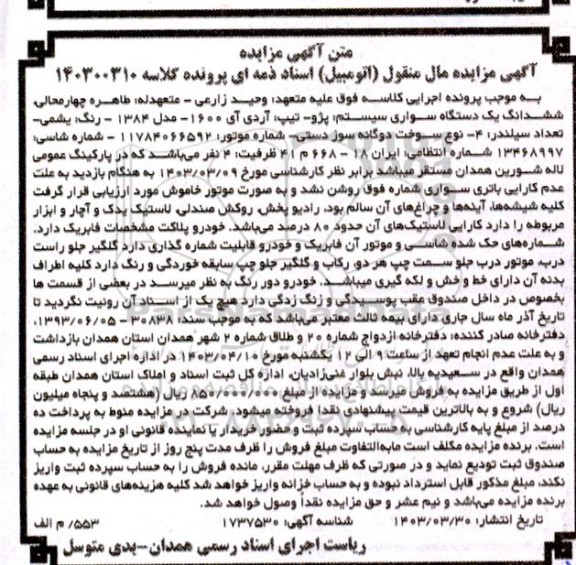 متن آگهی مزایده
آگهی مزایده مال منقول (اتومبیل) اسناد ذمه ای پرونده کلاسه ۱۴۰۳۰۰۳۱۰
به موجب پرونده اجرایی کلاسه فوق علیه متعهد: وحید زارعی - متعهدله: طاهره چهارمحالی،
ششدانگ یک دستگاه سواری سیستم: پژو- تیپ: آردی آی ۱۶۰۰- مدل ۱۳۸۴ - رنگ: یشمی-
تعداد سیلندر: ۴- نوع سوخت دوگانه سوز دستی- شماره موتور: ۱۱۷۸۴۰۶۶۵۹۲ - شماره شاسی:
۱۳۴۶۸۹۹۷ شماره انتظامی: ایران ۱۸ - ۶۶۸ م ۴۱ ظرفیت: ۴ نفر می‌باشد که در پارکینگ عمومی
لاله شورین همدان مستقر میباشد برابر نظر کارشناسی مورخ ۱۴۰۳/۰۳/۰۹ به هنگام بازدید به علت
عدم کارایی باتری سواری شماره فوق روشن نشد و به صورت موتور خاموش مورد ارزیابی قرار گرفت
کلیه شیشه‌ها، آینه‌ها و چراغ‌های آن سالم بود، رادیو پخش، روکش صندلی، لاستیک یدک و آچار و ابزار
مربوطه را دارد کارایی لاستیک‌های آن حدود ۸۰ درصد می‌باشد. خودرو پلاکت مشخصات فابریک دارد.
شماره‌های حک شده شاسی و موتور آن فابریک و خودرو قابلیت شماره گذاری دارد گلگیر جلو راست
درب، موتور درب جلو سمت چپ هر دو، رکاب و گلگیر جلو چپ سابقه خوردگی و رنگ دارد کلیه اطراف
بدنه آن دارای خط و خش و لکه گیری میباشد. خودرو دور رنگ به نظر میرسد در بعضی از قسمت ها
بخصوص در داخل صندوق عقب پوسیدگی و زنگ زدگی دارد هیچ یک از اسناد آن رونیت نگردید تا
تاریخ آذر ماه سال جاری دارای بیمه ثالث معتبر می‌باشد که به موجب سند: ۳۰۸۳۸ - ۱۳۹۳/۰۶/۰۵،
دفترخانه صادر کننده: دفترخانه ازدواج شماره ۲۰ و طلاق شماره ۲ شهر همدان استان همدان بازداشت
و به علت عدم انجام تعهد از ساعت ۹ الی ۱۲ یکشنبه مورخ ۱۴۰۳/۰۴/۱۰ در اداره اجرای اسناد رسمی
همدان واقع در سعیدیه بالا، نبش بلوار غنی‌زادیان، اداره کل ثبت اسناد و املاک استان همدان طبقه
اول از طریق مزایده به فروش میرسد و مزایده از مبلغ ۸۵۰/۰۰۰/۰۰۰ ریال (هشتصد و پنجاه میلیون
ریال) شروع و به بالاترین قیمت پیشنهادی نقدا فروخته میشود. شرکت در مزایده منوط به پرداخت ده
درصد از مبلغ پایه کارشناسی به حساب سپرده ثبت و حضور خریدار یا نماینده قانونی او در جلسه مزایده
است. برنده مزایده مکلف است مابه‌التفاوت مبلغ فروش را ظرف مدت پنج روز از تاریخ مزایده به حساب
صندوق ثبت تودیع نماید و در صورتی که ظرف مهلت مقرر، مانده فروش را به حساب سپرده ثبت واریز
نکند، مبلغ مذکور قابل استرداد نبوده و به حساب خزانه واریز خواهد شد کلیه هزینه‌های قانونی به عهده
برنده مزایده می‌باشد و نیم عشر و حق مزایده نقداً وصول خواهد شد.
تاریخ انتشار: ۱۴۰۳/۰۳/۳۰ شناسه آگهی: ۱۷۳۷۵۳۰ ۵۵۳/ م الف
ریاست اجرای اسناد رسمی همدان-یدی متوسل